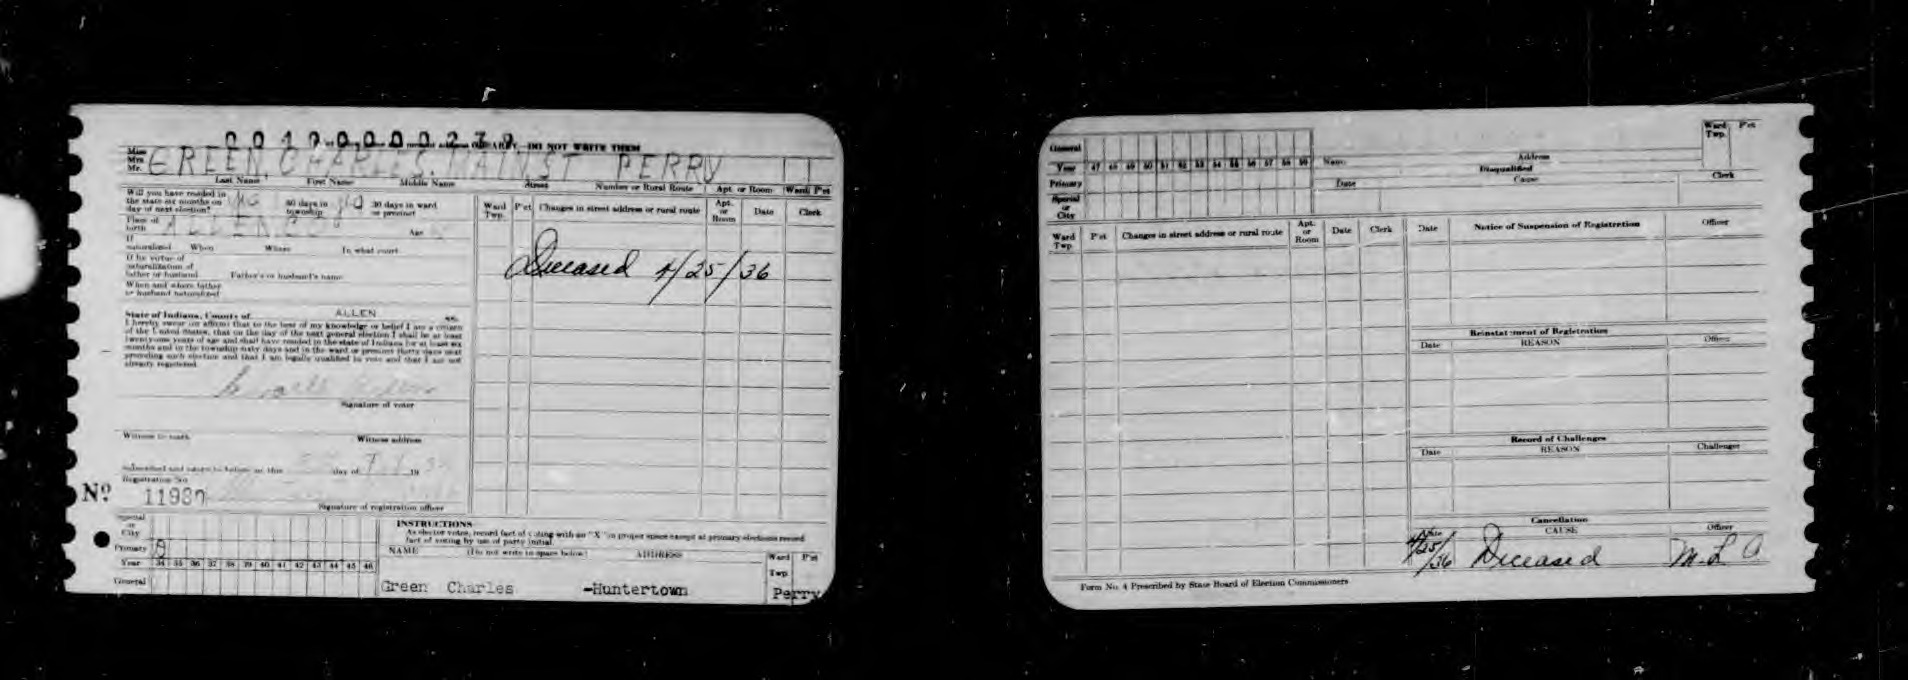 DO NOT WRITE THEM
Miss
Mrs.
Mr. GREEN, CHARLES. MAIN ST PERRY
Last Name First Name Middle Name Street Number or Rural Route Apt. or Room Ward Pct
Will you have resided in
the state six months on
day of next election? 60 days in
township 30 days in ward
or precinct
Place of
birth ALLEN CO Age
If
naturalized When Where In what court
If by virtue of
naturalization of
father or husband Father's or husband's name
When and where father
or husband naturalized
State of Indiana, County of ALLEN ss.
I hereby swear (or affirm) that to the best of my knowledge or belief I am a citizen
of the United States, that on the day of the next general election I shall be at least
twenty-one years of age and shall have resided in the state of Indiana for at least six
months and in the township sixty days and in the ward or precinct thirty days next
preceding such election and that I am legally qualified to vote and that I am not
already registered.
Signature of voter
Witness to mark Witness address
Subscribed and sworn to before me this day of 19
Registration No.
Nº 11980
Signature of registration officer
Ward
Twp. Pct Changes in street address or rural route Apt.
or
Room Date Clerk
Deceased 4/25/36
Special
or
City
Primary
Year 34 35 36 37 38 39 40 41 42 43 44 45 46
General
INSTRUCTIONS
As elector votes, record fact of voting with an "X" in proper space except at primary elections record
fact of voting by use of party initial.
NAME (Do not write in space below) ADDRESS Ward
Twp. Pct
Green Charles -Huntertown Perry
General
Year 47 48 49 50 51 52 53 54 55 56 57 58 59
Primary
Special
or
City
Name Address
Ward
Twp. Pct
Disqualified
Date Cause Clerk
Ward
Twp. Pct Changes in street address or rural route Apt.
or
Room Date Clerk
Date Notice of Suspension of Registration Officer
Reinstatement of Registration
Date REASON Officer
Record of Challenges
Date REASON Challenger
Cancellation
Date CAUSE Officer
4/25/36 Deceased M.L.A.
Form No. 4 Prescribed by State Board of Election Commissioners